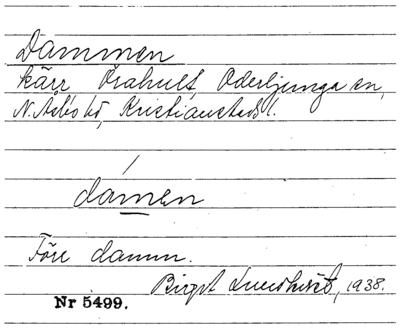 Dammen
kärr Örahult, Oderljunga sn,
N. Åsbo hd, Kristianstads l.
dámen
Före damm.
Birgit Lundkvist, 1938.
Nr 5499.